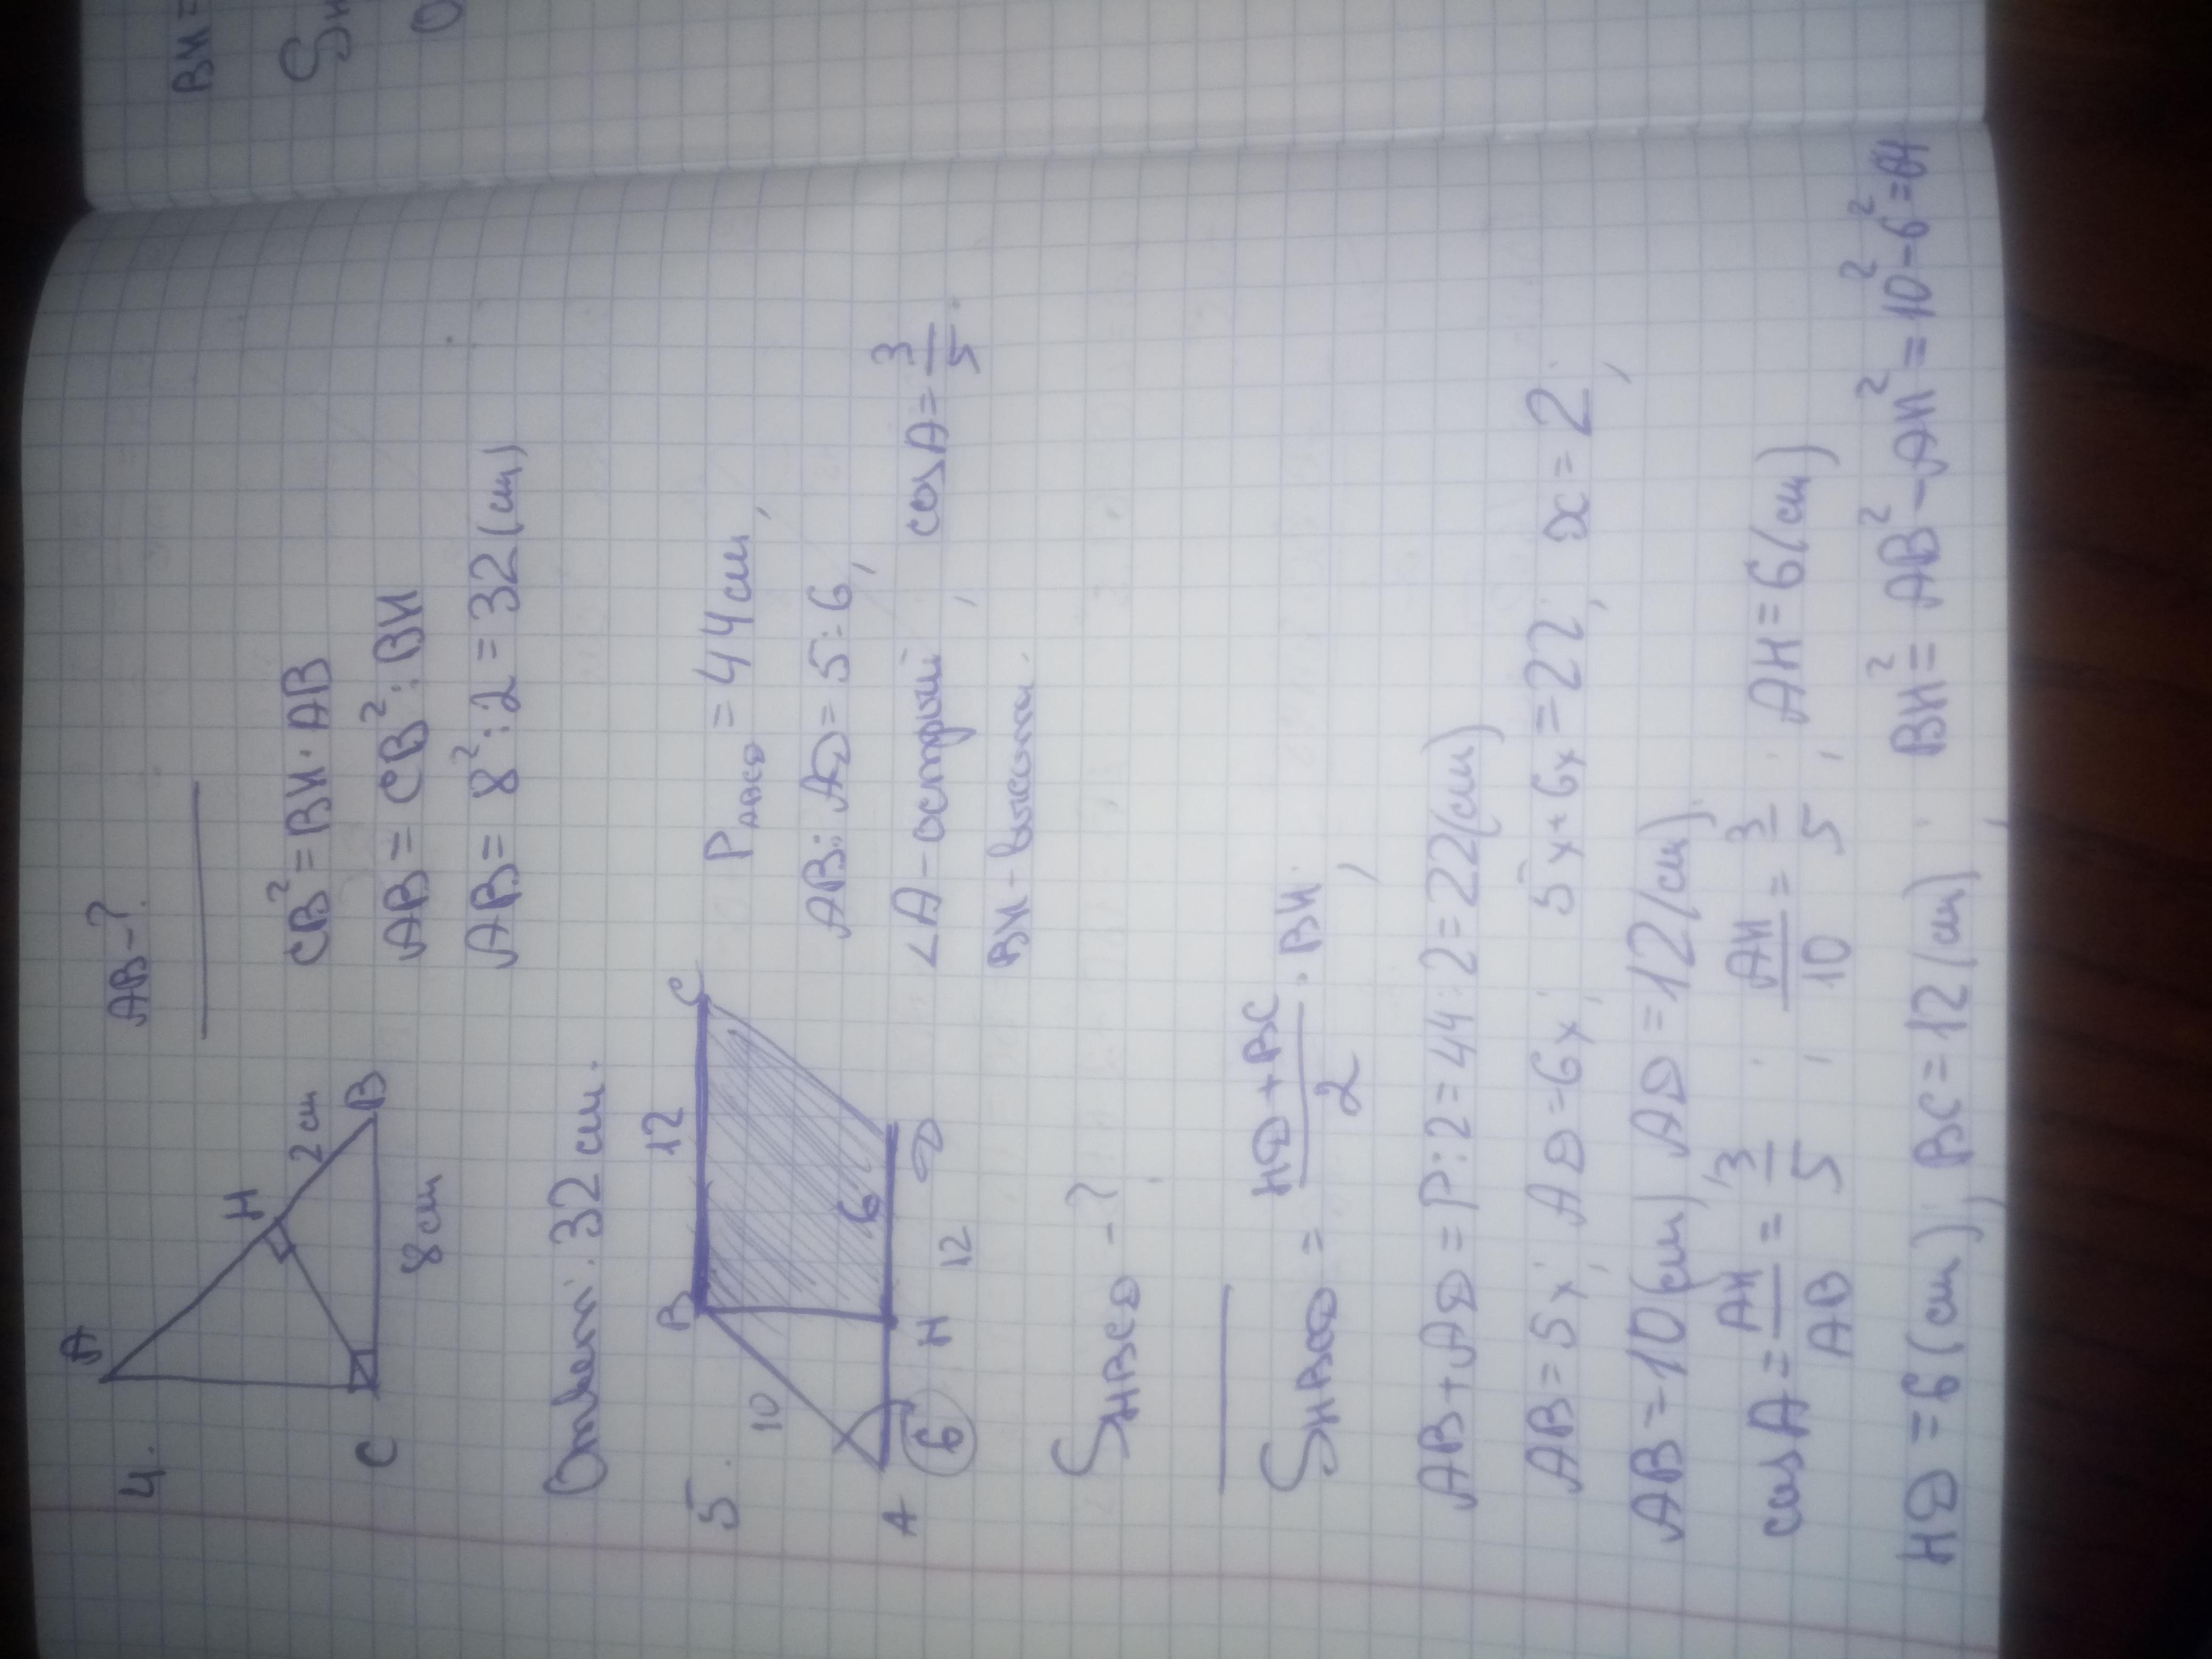 4.
A
H
2 см
C
B
8 см
AB-?
CB²=BH·AB
AB=CB²:BH
AB=8²:2=32(см)
Ответ: 32 см.
5.
B
12
C
10
6
A
6
H
D
12
P ABCD = 44 см,
AB:AD=5:6,
∠A-острый, cosA=3/5.
BH-высота.
S HBCD -?
S HBCD = (HD+BC)/2 · BH;
AB+AD=P:2=44:2=22(см)
AB=5x; AD=6x; 5x+6x=22; x=2;
AB=10(см) AD=12(см)
cosA=AH/AB=3/5; AH/10=3/5; AH=6(см)
HD=6(см); BC=12(см); BH²=AB²-AH²=10²-6²=
BH=